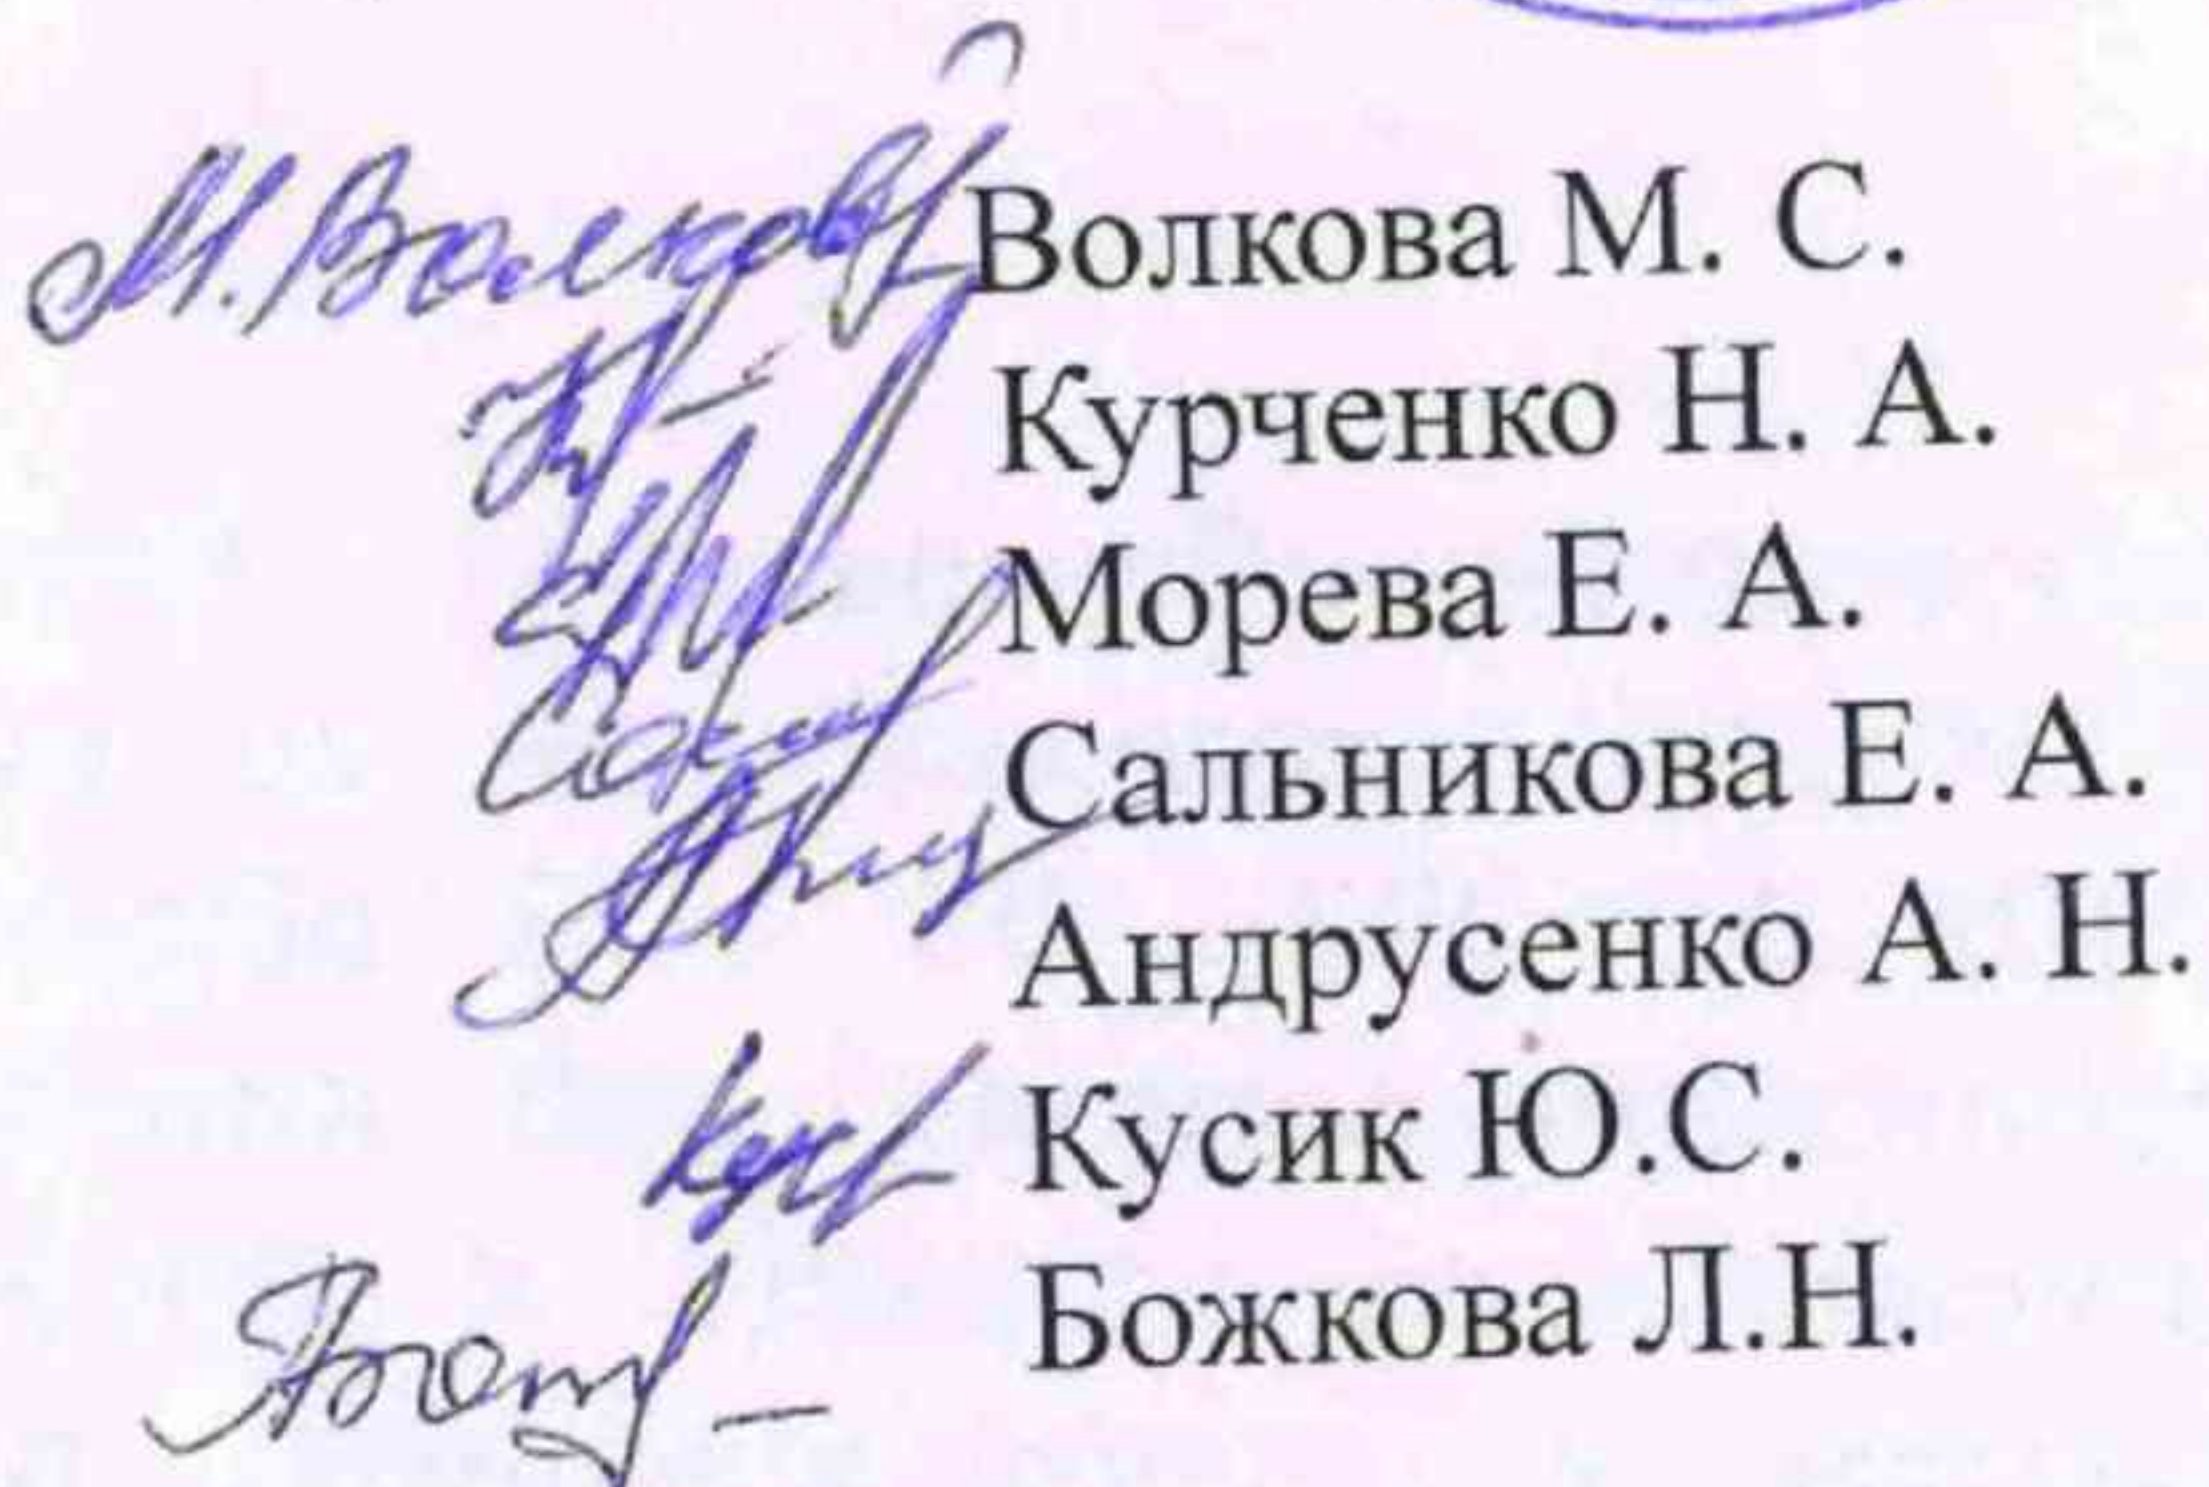 М. Волкова Волкова М. С.
Курченко Н. А.
Морева Е. А.
Сальникова Е. А.
Андрусенко А. Н.
Кусик Ю.С.
Божкова Л.Н.